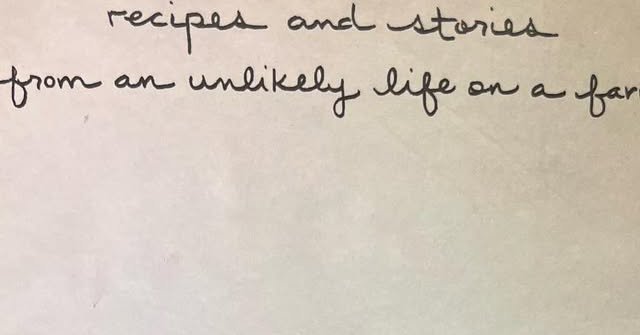 recipes and stories
from an unlikely life on a far